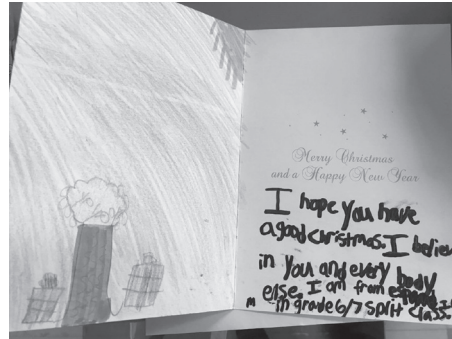 Merry Christmas
and a Happy New Year
I hope you have
a good cristmas. I believe
in you and every body
else. I am from
in grade 6/7 split class.